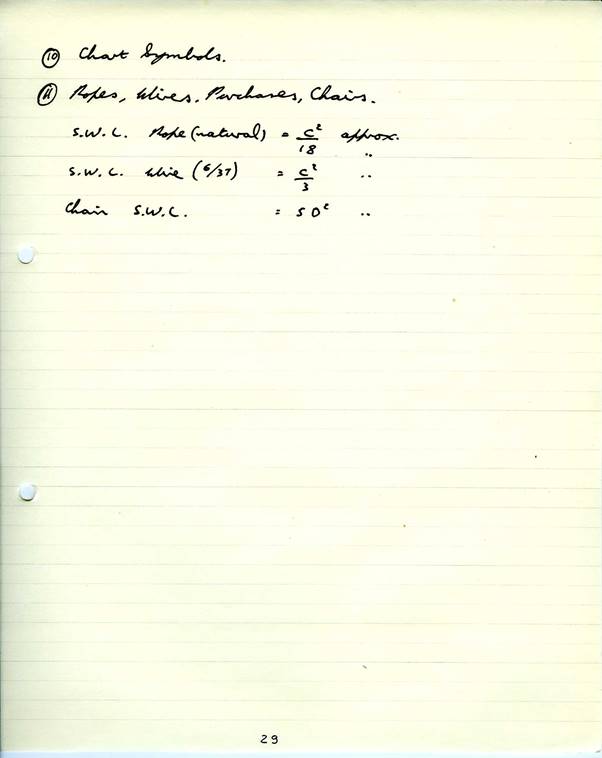 ⑩ Chart Symbols.
⑪ Ropes, Wires, Purchases, Chains.
S.W.L. Rope (natural) = C²/18 approx.
S.W.L. Wire (6/37) = C²/3 "
Chain S.W.L. = 5D² "
29